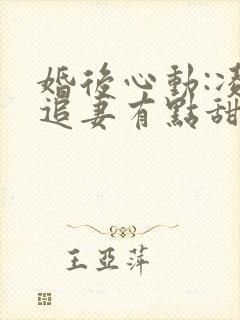 婚後心動:凌
追妻有點甜
王亞萍